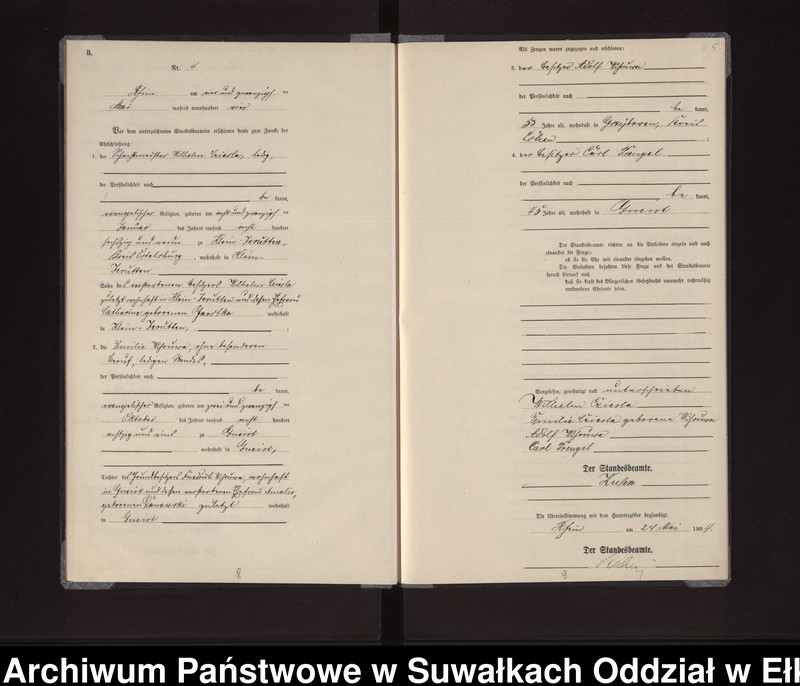 B.
Nr. 4
Rhein am vier und zwanzigsten
Mai tausend neunhundert vier
Vor dem unterzeichneten Standesbeamten erschienen heute zum Zwecke der
Eheschließung:
1. der Wilhelm Cziesla, ledig,
der Persönlichkeit nach
be kannt,
evangelischer Religion, geboren am acht und zwanzigsten
Januar des Jahres tausend acht hundert
sechszig und neun zu Klein-Jerutten,
Kreis Ortelsburg, wohnhaft in Klein-
Jerutten
Sohn des verstorbenen Besitzers Wilhelm Cziesla
zuletzt wohnhaft in Klein-Jerutten und dessen Ehefrau
Catharine geborenen wohnhaft
in Klein-Jerutten,
2. die Emilie, ohne besonderen
Beruf, ledigen Standes,
der Persönlichkeit nach
be kannt,
evangelischer Religion, geboren am zwei und zwanzigsten
Oktober des Jahres tausend acht hundert
achtzig und eins zu Gneist
wohnhaft in Gneist,
Tochter des Grundbesitzers, wohnhaft
in Gneist und dessen verstorbenen Ehefrau Amalie,
geborenen zuletzt wohnhaft
in Gneist
8
5
Als Zeugen waren zugezogen und erschienen:
3. der Besitzer Adolf
der Persönlichkeit nach
be kannt,
53 Jahre alt, wohnhaft in Kreis
Lötzen
4. der Besitzer Carl Trengel
der Persönlichkeit nach
be kannt,
45 Jahre alt, wohnhaft in Gneist
Der Standesbeamte richtete an die Verlobten einzeln und nach
einander die Frage:
ob sie die Ehe mit einander eingehen wollen.
Die Verlobten bejahten diese Frage und der Standesbeamte
sprach hierauf aus,
daß sie kraft des Bürgerlichen Gesetzbuchs nunmehr rechtmäßig
verbundene Eheleute seien.
Vorgelesen, genehmigt und unterschrieben
Wilhelm Cziesla
Emilie Cziesla geborene
Adolf
Carl Trengel
Der Standesbeamte.
Die Übereinstimmung mit dem Hauptregister beglaubigt.
Rhein am 24 Mai 1904.
Der Standesbeamte.
8
Archiwum Państwowe w Suwałkach Oddział w Eł